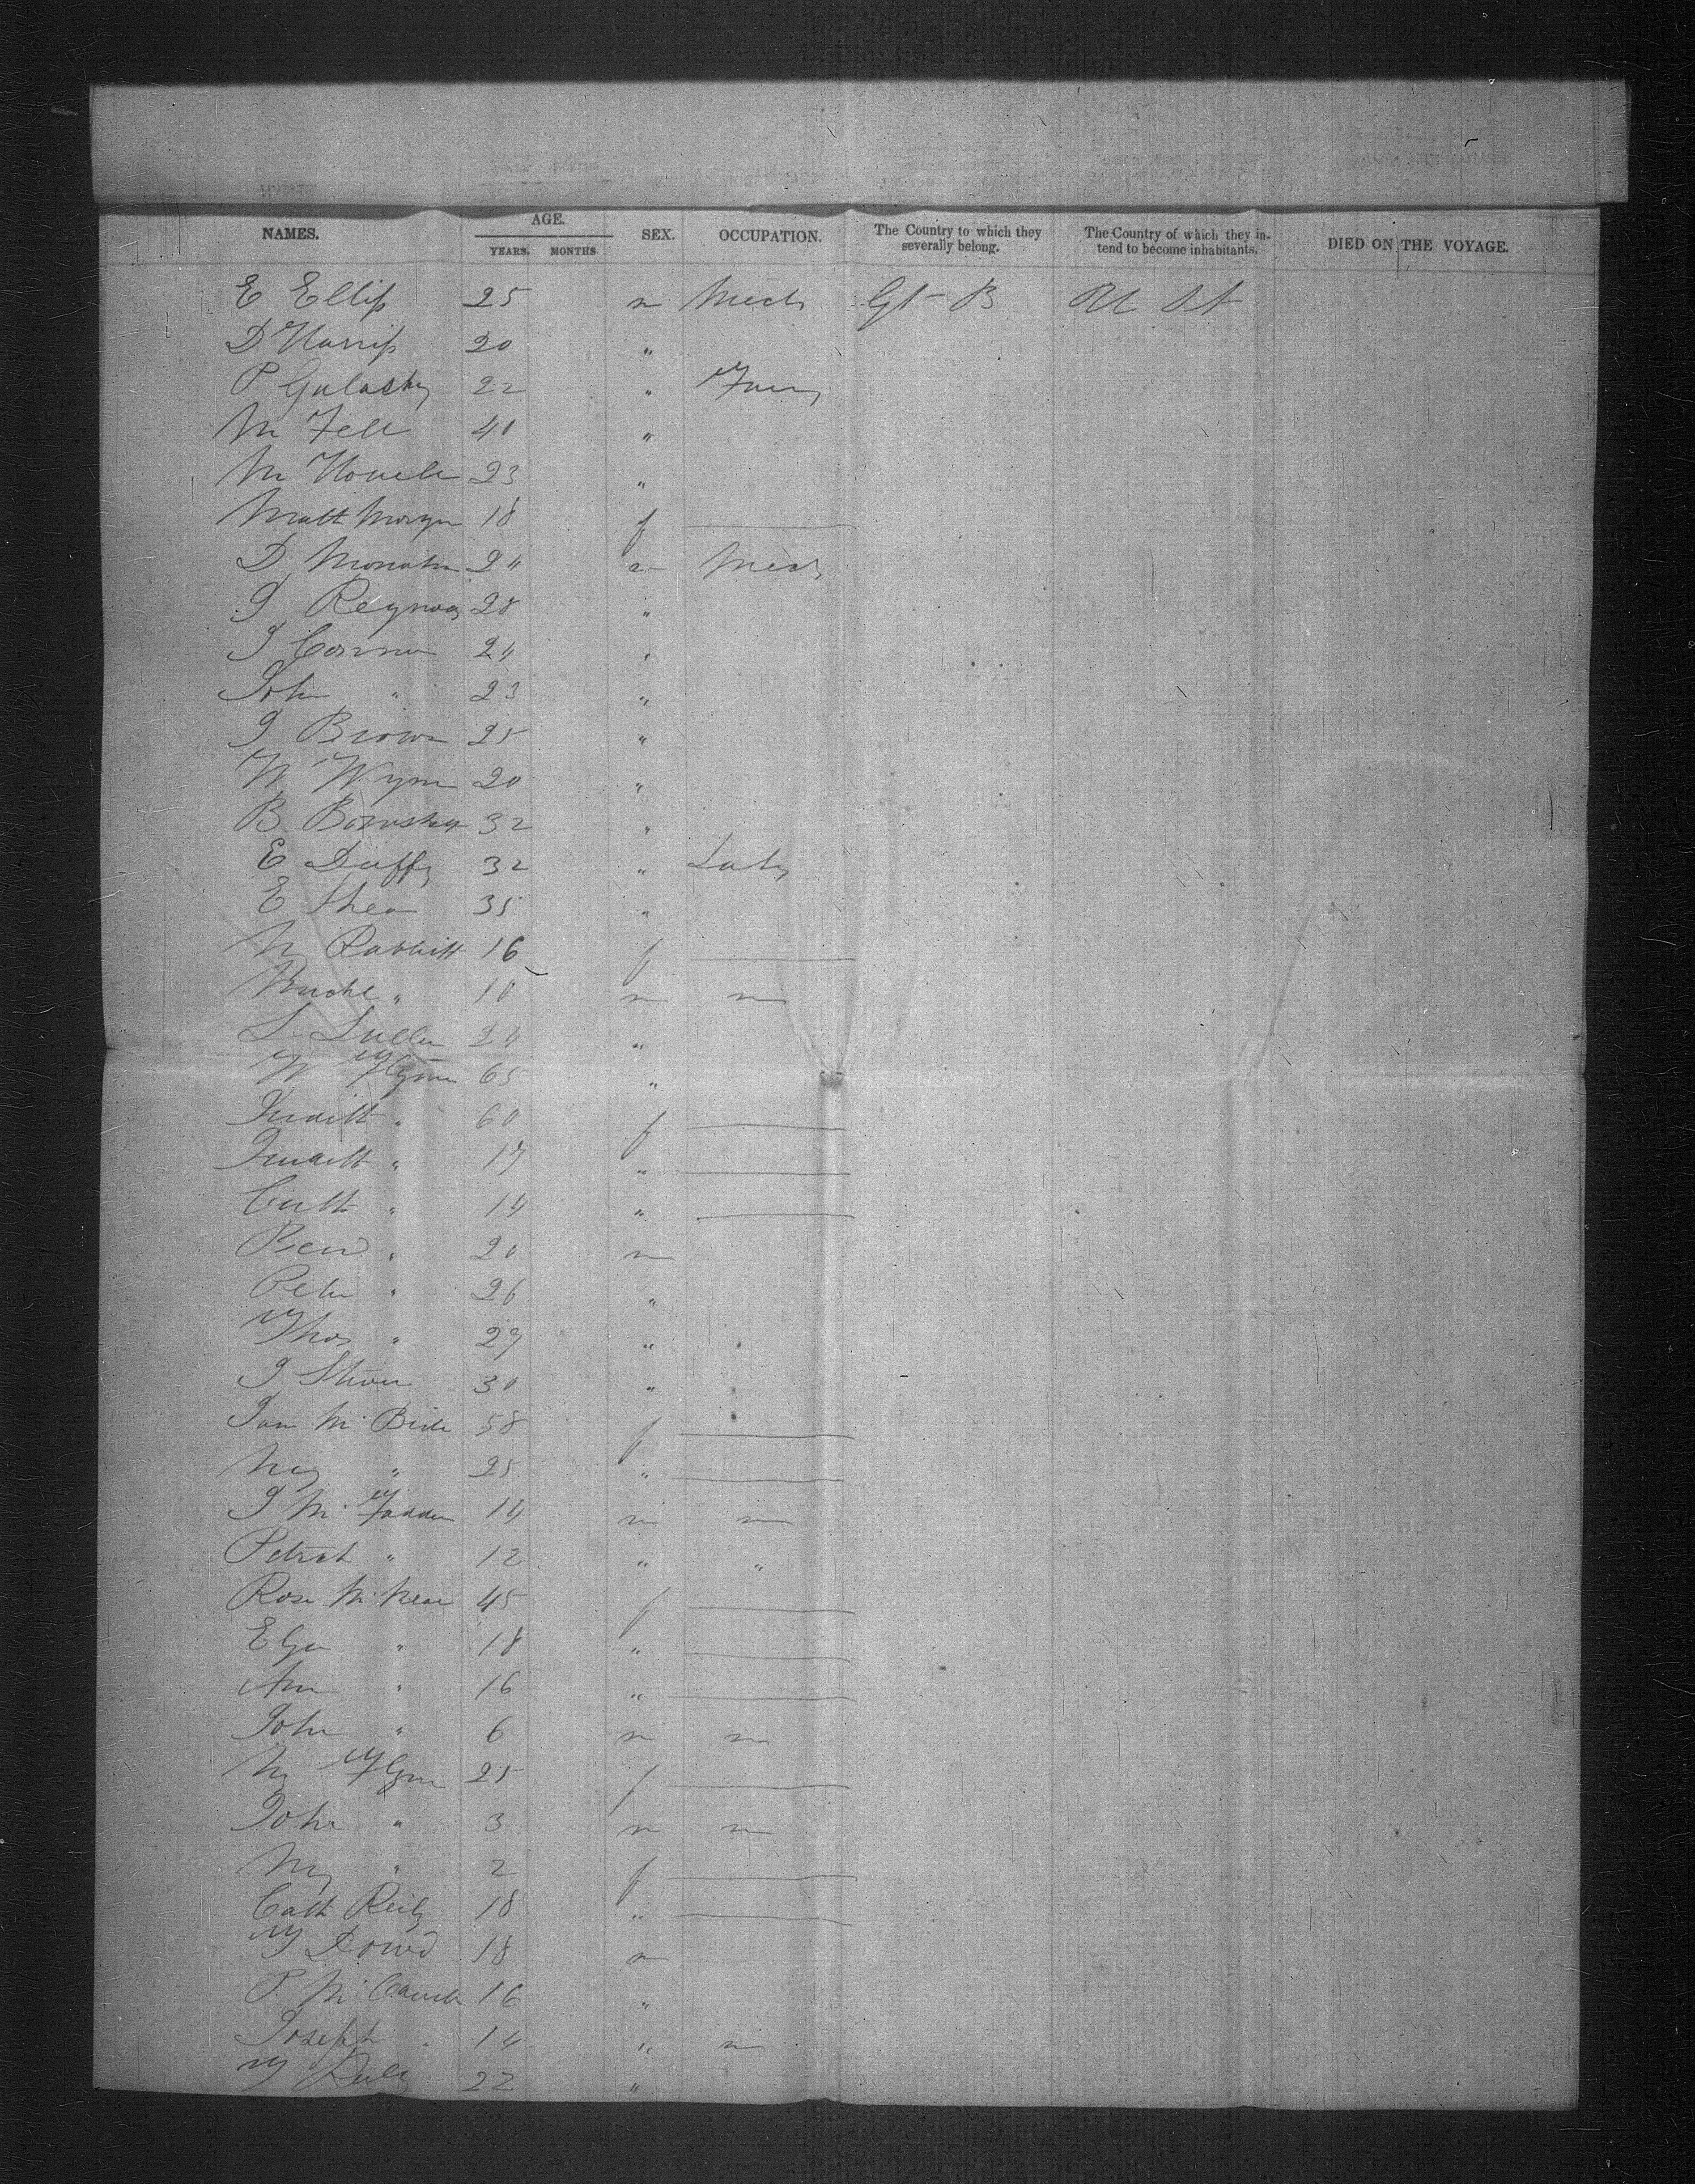 NAMES. AGE. YEARS. MONTHS. SEX. OCCUPATION. The Country to which they severally belong. The Country of which they intend to become inhabitants. DIED ON THE VOYAGE.
E Ellis 25 m Mech Gt B U St
D Harris 20 "
P 22 "
M Fell 40 "
M Howell 23 "
Matt Morgan 18 f
D Monahan 24 m Mech
J 28 "
J Connor 24 "
John " 23 "
J Brown 25 "
W Wynn 20 "
B 32 "
E Duffy 32 " Lab
E Shea 35 "
My Rabbitt 16 f
" 10 m
L 24 "
W Flynn 65 "
Judith " 60 f
Judith " 17 "
Cath " 14 "
" 20 m
Peter " 26 "
Thos " 27 "
J 30 "
Jane Mc Bride 58 f
My " 25 "
J Mc Fadden 14 m
Patrick " 12 " "
Rose Mc 45 f
" 18 "
Ann " 16 "
John " 6 m
My Flynn 25 f
John " 3 m
My " 2 f
Cath Reily 18 "
Dowd 18 m
P. Mc 16 "
Joseph " 14 "
22 "